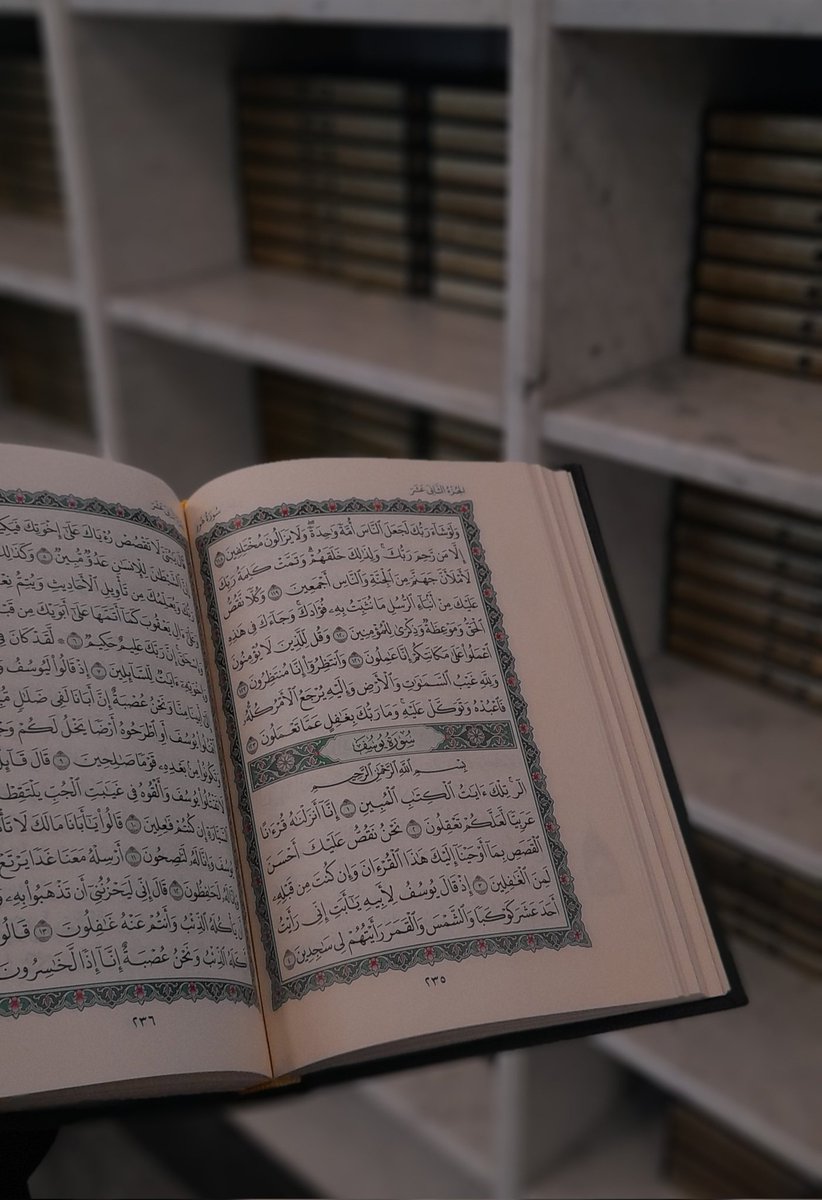 الجزء الثاني عشر
سورة هود
وَلَوْ شَآءَ رَبُّكَ لَجَعَلَ ٱلنَّاسَ أُمَّةً وَٰحِدَةً ۖ وَلَا يَزَالُونَ مُخْتَلِفِينَ ١١٨
إِلَّا مَن رَّحِمَ رَبُّكَ ۚ وَلِذَٰلِكَ خَلَقَهُمْ ۗ وَتَمَّتْ كَلِمَةُ رَبِّكَ
لَأَمْلَأَنَّ جَهَنَّمَ مِنَ ٱلْجِنَّةِ وَٱلنَّاسِ أَجْمَعِينَ ١١٩ وَكُلًّا نَّقُصُّ
عَلَيْكَ مِنْ أَنۢبَآءِ ٱلرُّسُلِ مَا نُثَبِّتُ بِهِۦ فُؤَادَكَ ۚ وَجَآءَكَ فِى هَٰذِهِ
ٱلْحَقُّ وَمَوْعِظَةٌ وَذِكْرَىٰ لِلْمُؤْمِنِينَ ١٢٠ وَقُل لِّلَّذِينَ لَا يُؤْمِنُونَ
ٱعْمَلُوا۟ عَلَىٰ مَكَانَتِكُمْ إِنَّا عَٰمِلُونَ ١٢١ وَٱنتَظِرُوٓا۟ إِنَّا مُنتَظِرُونَ ١٢٢
وَلِلَّهِ غَيْبُ ٱلسَّمَٰوَٰتِ وَٱلْأَرْضِ وَإِلَيْهِ يُرْجَعُ ٱلْأَمْرُ كُلُّهُۥ
فَٱعْبُدْهُ وَتَوَكَّلْ عَلَيْهِ ۚ وَمَا رَبُّكَ بِغَٰفِلٍ عَمَّا تَعْمَلُونَ ١٢٣
سُورَةُ يُوسُفَ
بِسْمِ ٱللَّهِ ٱلرَّحْمَٰنِ ٱلرَّحِيمِ
الٓر ۚ تِلْكَ ءَايَٰتُ ٱلْكِتَٰبِ ٱلْمُبِينِ ١ إِنَّآ أَنزَلْنَٰهُ قُرْءَٰنًا
عَرَبِيًّا لَّعَلَّكُمْ تَعْقِلُونَ ٢ نَحْنُ نَقُصُّ عَلَيْكَ أَحْسَنَ
ٱلْقَصَصِ بِمَآ أَوْحَيْنَآ إِلَيْكَ هَٰذَا ٱلْقُرْءَانَ وَإِن كُنتَ مِن قَبْلِهِۦ
لَمِنَ ٱلْغَٰفِلِينَ ٣ إِذْ قَالَ يُوسُفُ لِأَبِيهِ يَٰٓأَبَتِ إِنِّى رَأَيْتُ
أَحَدَ عَشَرَ كَوْكَبًا وَٱلشَّمْسَ وَٱلْقَمَرَ رَأَيْتُهُمْ لِى سَٰجِدِينَ ٤
٢٣٥
لَا تَقْصُصْ رُءْيَاكَ عَلَىٰٓ إِخْوَتِكَ فَيَكِيدُوا۟
ٱلشَّيْطَٰنَ لِلْإِنسَٰنِ عَدُوٌّ مُّبِينٌ ٥ وَكَذَٰلِكَ
رَبُّكَ وَيُعَلِّمُكَ مِن تَأْوِيلِ ٱلْأَحَادِيثِ وَيُتِمُّ
ءَالِ يَعْقُوبَ كَمَآ أَتَمَّهَا عَلَىٰٓ أَبَوَيْكَ مِن
إِنَّ رَبَّكَ عَلِيمٌ حَكِيمٌ ٦ لَّقَدْ كَانَ فِى
وَإِخْوَتِهِۦٓ ءَايَٰتٌ لِّلسَّآئِلِينَ ٧ إِذْ قَالُوا۟ لَيُوسُفُ
أَبِينَا مِنَّا وَنَحْنُ عُصْبَةٌ إِنَّ أَبَانَا لَفِى ضَلَٰلٍ
ٱقْتُلُوا۟ يُوسُفَ أَوِ ٱطْرَحُوهُ أَرْضًا يَخْلُ لَكُمْ
وَتَكُونُوا۟ مِنۢ بَعْدِهِۦ قَوْمًا صَٰلِحِينَ ٩ قَالَ قَآئِلٌ
لَا تَقْتُلُوا۟ يُوسُفَ وَأَلْقُوهُ فِى غَيَٰبَتِ ٱلْجُبِّ يَلْتَقِطْهُ
ٱلسَّيَّارَةِ إِن كُنتُمْ فَٰعِلِينَ ١٠ قَالُوا۟ يَٰٓأَبَانَا مَا لَكَ لَا
يُوسُفَ وَإِنَّا لَهُۥ لَنَٰصِحُونَ ١١ أَرْسِلْهُ مَعَنَا غَدًا يَرْتَعْ
وَإِنَّا لَهُۥ لَحَٰفِظُونَ ١٢ قَالَ إِنِّى لَيَحْزُنُنِىٓ أَن تَذْهَبُوا۟ بِهِۦ
يَأْكُلَهُ ٱلذِّئْبُ وَأَنتُمْ عَنْهُ غَٰفِلُونَ ١٣ قَالُوا۟
أَكَلَهُ ٱلذِّئْبُ وَنَحْنُ عُصْبَةٌ إِنَّآ إِذًا لَّخَٰسِرُونَ
٢٣٦